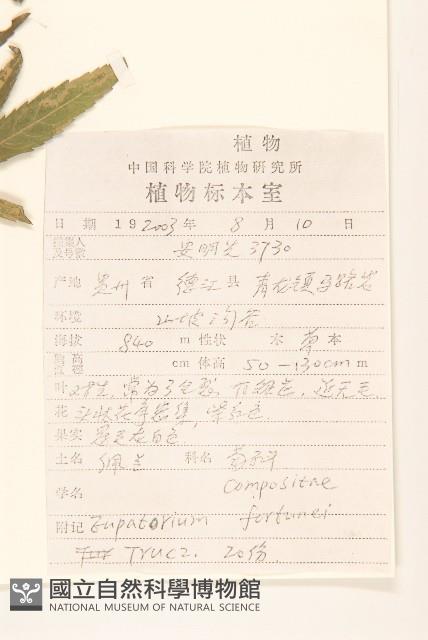 植物
中国科学院植物研究所
植物标本室
日 期 19 2003 年 8 月 10 日
采集人及号数 安明先 3730
产地 贵州 省 德江 县 青龙镇
环境 山坡沟谷
海拔 840 m 性状 木 草 本
胸高直径 cm 体高 50-130cm m
叶 对生，常为3全裂，
花 头状花序密集，紫红色
果实 冠毛灰白色
土名 佩兰 科名 菊科
学名 Compositae
附记 Eupatorium fortunei
Trucz. 20份
國立自然科學博物館
NATIONAL MUSEUM OF NATURAL SCIENCE